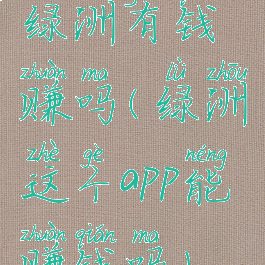 绿洲有钱
zhuàn ma lǜ zhōu
赚吗(绿洲
zhè gè néng
这个app能
zhuàn qián ma
赚钱吗)